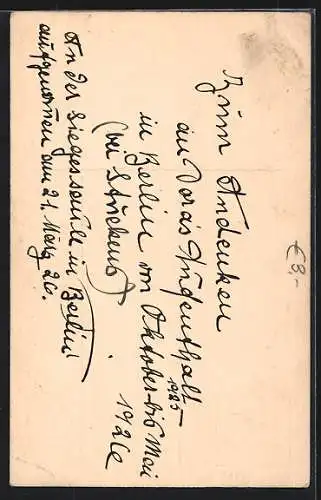 Zum Andenken
an Doras Aufenthalt
in Berlin von Oktober bis Mai
1925
1926
(bei Stückens)
An der Siegessäule in Berlin
aufgenommen am 21. März 26.
€ 8,-